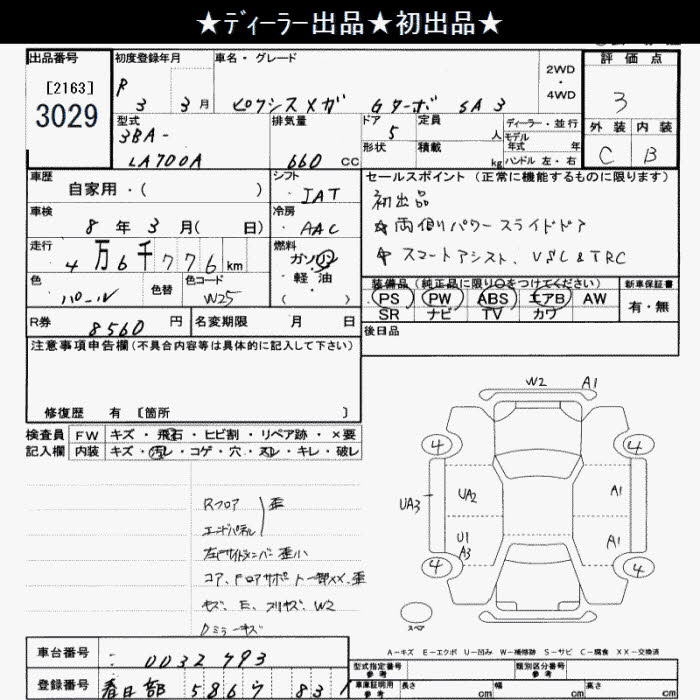 ★ディーラー出品★初出品★
出品番号
[2163]
3029
初度登録年月
R 3 3月
車名・グレード
ピクシスメガ Gターボ SA3
2WD
・
4WD
評価点
3
外装 内装
C B
型式
3BA-
LA700A
排気量
660 CC
ドア
5
形状
定員
人
積載
kg
ディーラー・並行
モデル
年式 年
ハンドル 左・右
車歴
自家用・( )
シフト
IAT
車検
8年3月( 日)
冷房
AAC
走行
4万6千776km
燃料
ガソリン
・軽油
・( )
色
パール
色替
色コード
W25
R券 8560円
名変期限 月 日
セールスポイント (正常に機能するものに限ります)
初出品
★両側パワースライドドア
★スマートアシスト、VSC&TRC
装備品 (純正品に限り○をつけてください)
PS PW ABS エアB AW
SR ナビ TV カワ
新車保証書
有・無
後日品
注意事項申告欄(不具合内容等は具体的に記入して下さい)
修復歴 有 [箇所 ]
検査員
記入欄
FW キズ・飛石・ヒビ割・リペア跡・×要
内装 キズ・汚レ・コゲ・穴・スレ・キレ・破レ
Rフロア 歪
エンドパネル
左Rサイドメンバー歪小
コア、Fロアサポート一部XX、歪
キズ、E、フリキズ、W2
Dミラーキズ
W2 A1
4 4
UA3 UA2 A1
U1 A3 A1
4 4
スペア
A-キズ E-エクボ U-凹み W-補修跡 S-サビ C-腐食 XX-交換済
車台番号
0032793
登録番号
春日部 586 ワ 831
型式指定番号
参考
類別区分番号
参考
車庫証明用
参考
長さ cm
幅 cm
高さ cm